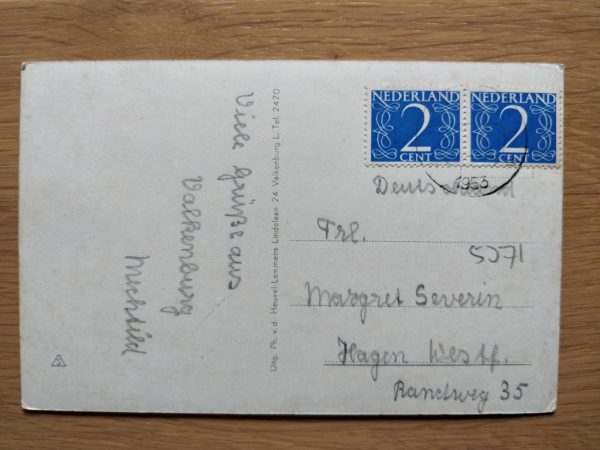 NEDERLAND
2
CENT
NEDERLAND
2
CENT
1953
Deutschland
Viele Grüße aus
Valkenburg
Mechtild
Uitg. Ph. v. d. Heuvel-Lemmens Lindelaan 24 Valkenburg L. Tel. 2470
Frl.
Margret Severin
Hagen Westf.
Randweg 35